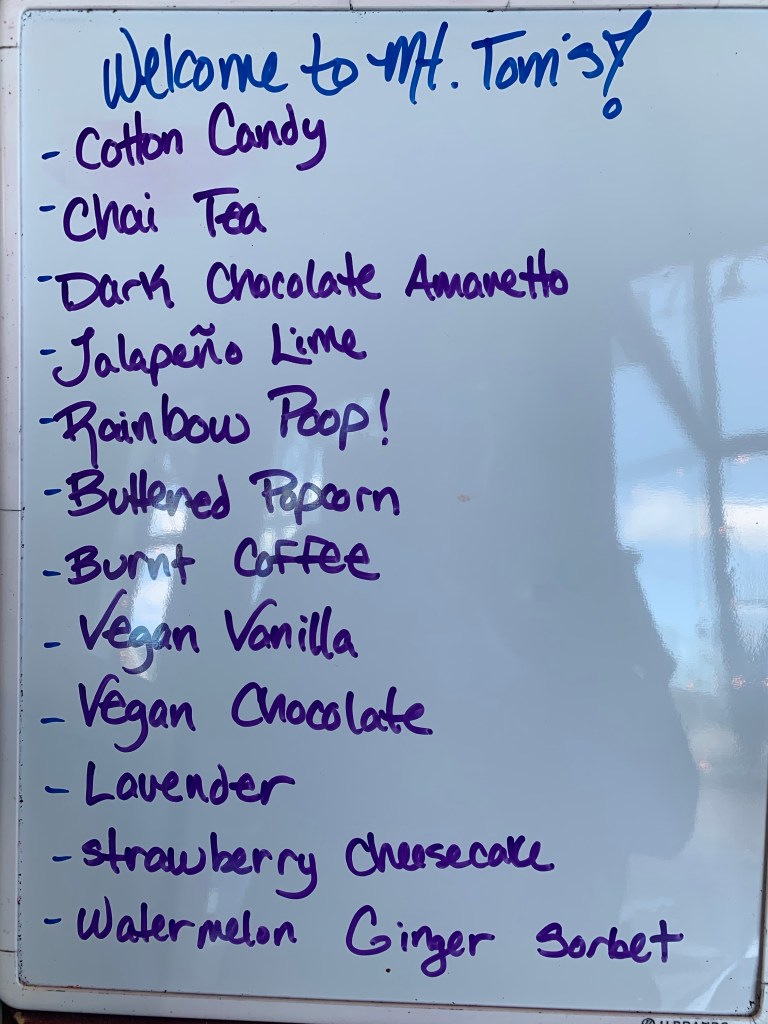 Welcome to Mt. Tom's!
- Cotton Candy
- Chai Tea
- Dark Chocolate Amaretto
- Jalapeño Lime
- Rainbow Poop!
- Buttered Popcorn
- Burnt Coffee
- Vegan Vanilla
- Vegan Chocolate
- Lavender
- Strawberry Cheesecake
- Watermelon Ginger Sorbet